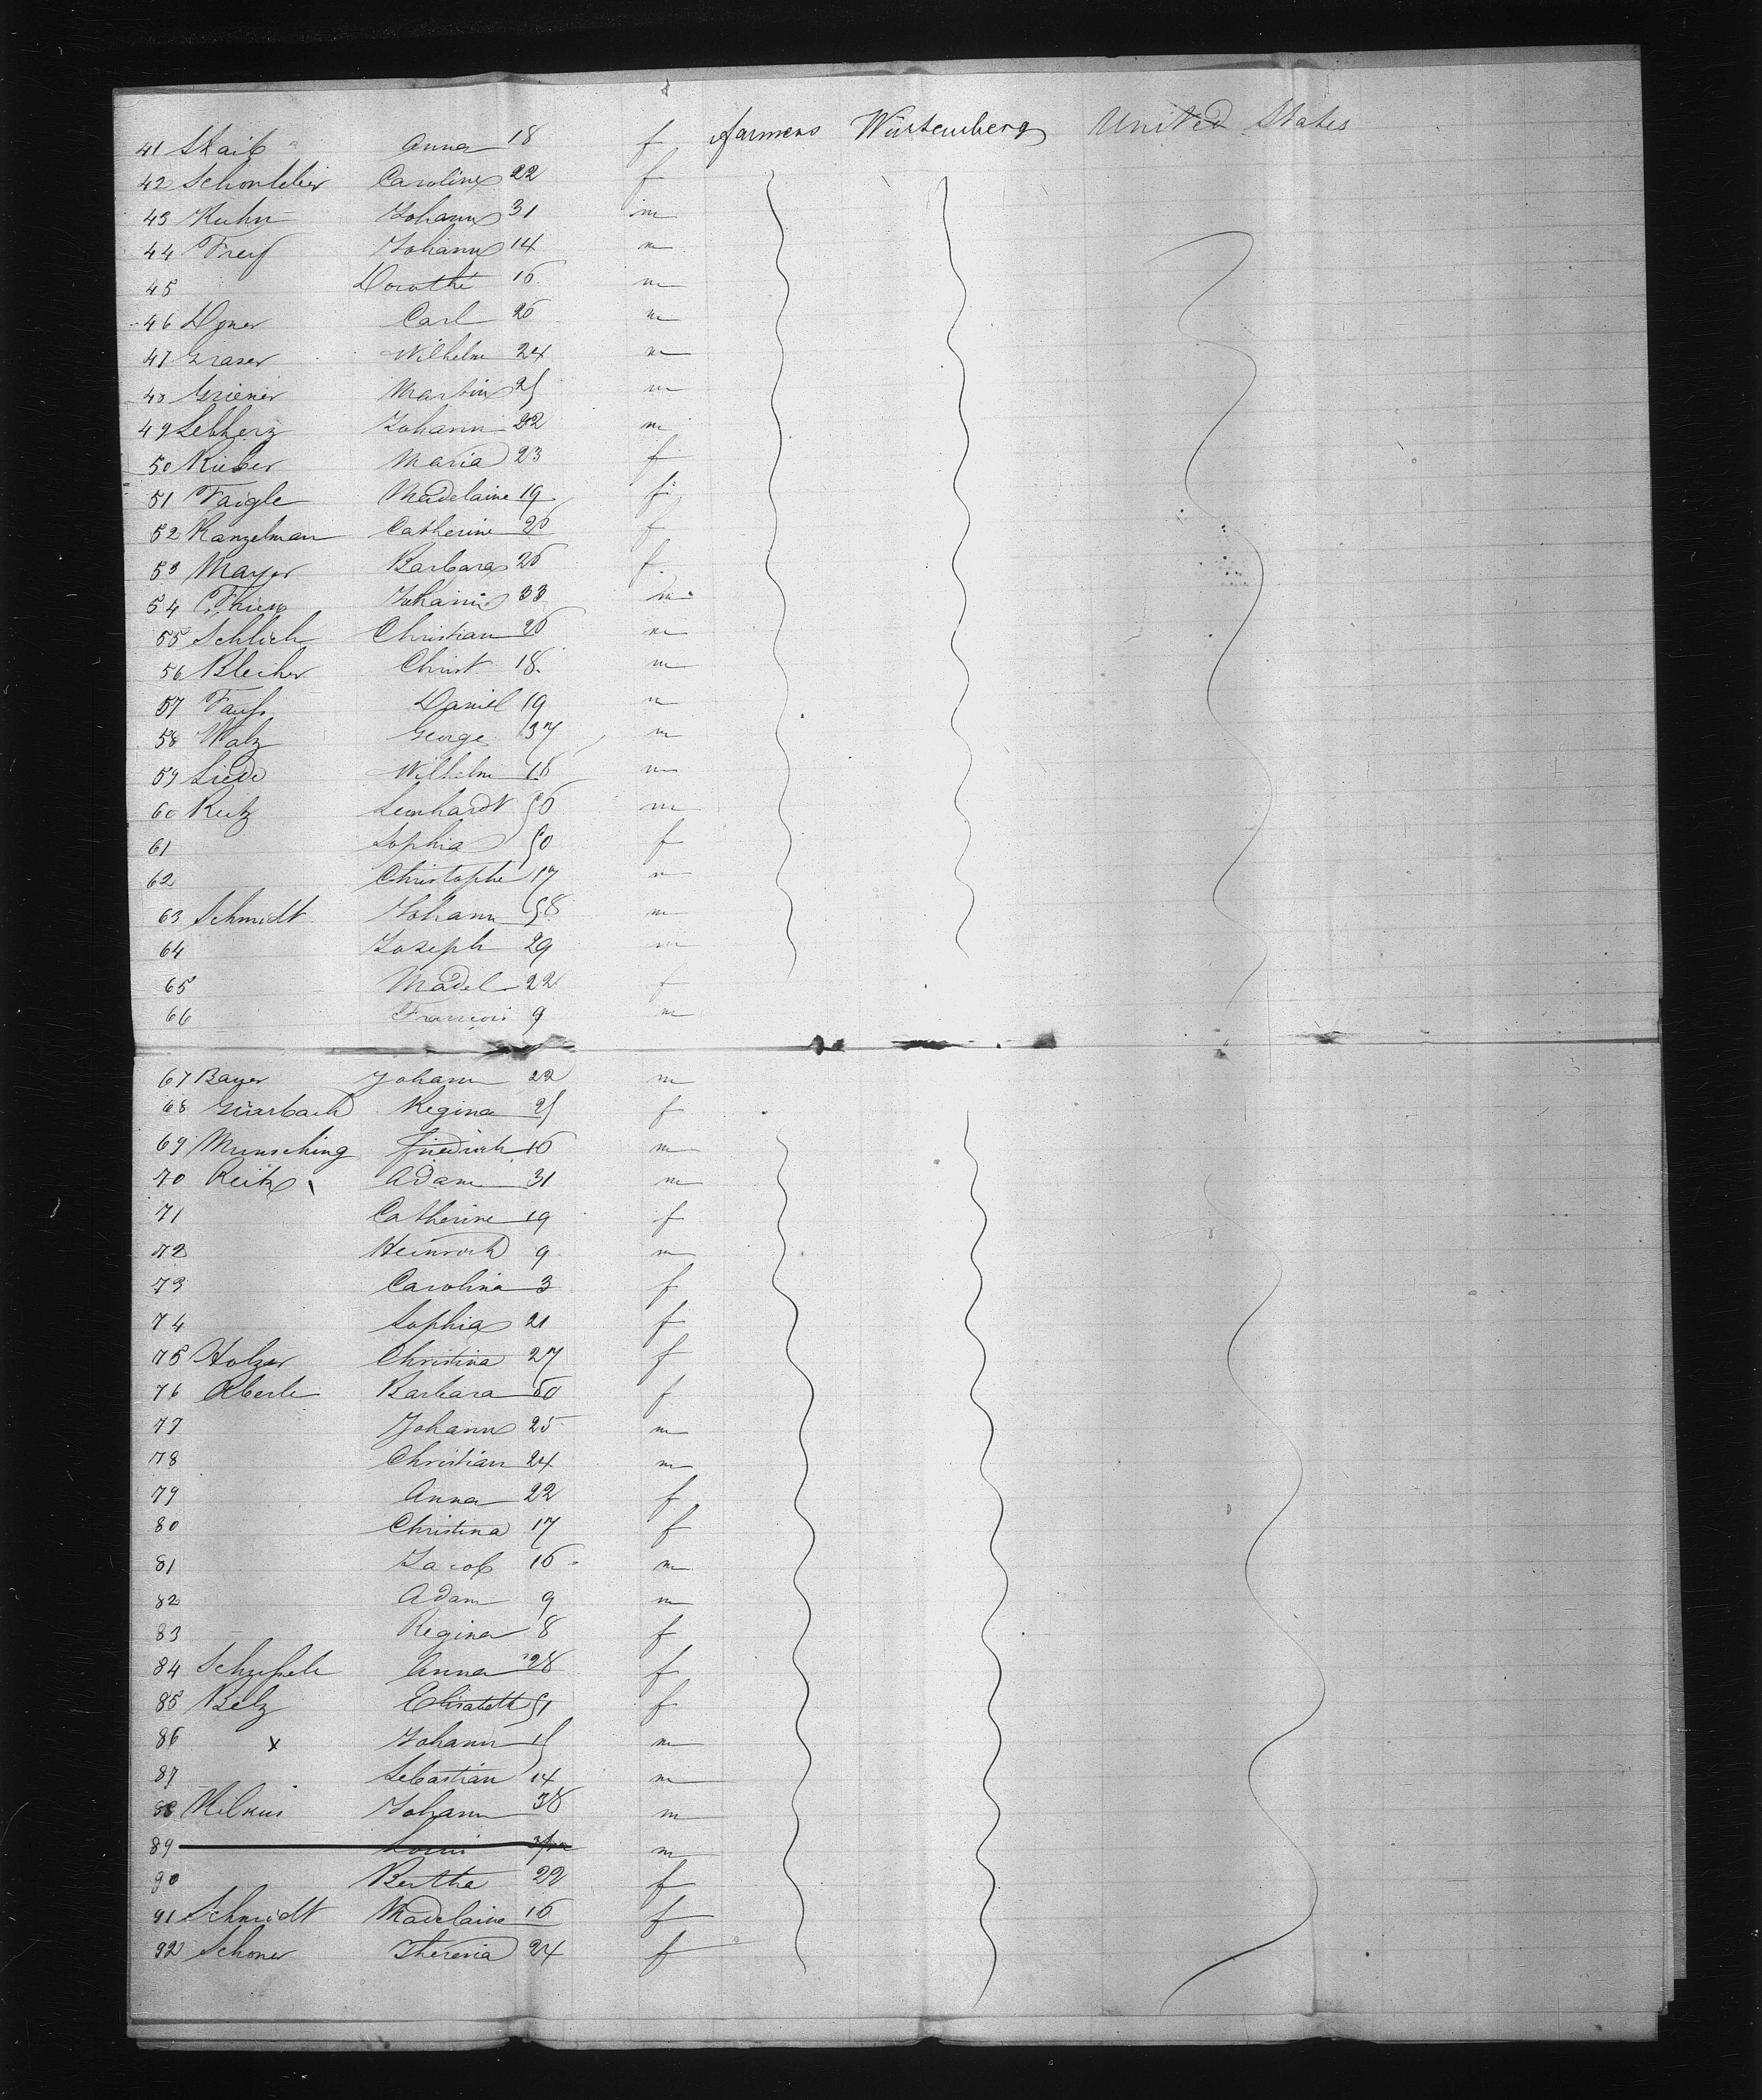 41 Staib Anna 18 f farmers Würtemberg United States
42 Caroline 22 f
43 Kuhn Johann 31 m
44 Frey Johann 14 m
45 Dorothe 16 m
46 Carl 26 m
47 Graser Wilhelm 24 m
48 Griener Martin 25 m
49 Lebherz Johann 22 m
50 Rieber Maria 23 f
51 Faigle Madelaine 19 f
52 Kanzelman Catherine 26 f
53 Mayer Barbara 26 f
54 Johann 33 m
55 Schlich Christian 26 m
56 Bleicher Christ 18 m
57 Fauß Daniel 19 m
58 Walz George 37 m
59 Wilhelm 16 m
60 Reitz Leonhardt 56 m
61 Sophia 50 f
62 Christophe 17 m
63 Schmidt Johann 58 m
64 Joseph 29 m
65 Madel 22 f
66 François 9 m
67 Bayer Johann 22 m
68 Regina 25 f
69 Munsching Friedrich 16 m
70 Reitz Adam 31 m
71 Catherine 19 f
72 Heinrich 9 m
73 Carolina 3 f
74 Sophia 21 f
75 Holzer Christina 27 f
76 Eberle Barbara 60 f
77 Johann 25 m
78 Christian 24 m
79 Anna 22 f
80 Christina 17 f
81 Jacob 16 m
82 Adam 9 m
83 Regina 8 f
84 Anna 28 f
85 Belz Elisabeth 51 f
86 x Johann 15 m
87 Sebastian 14 m
88 Johann 38 m
89 Louis m
90 Berthe 22 f
91 Schmidt Madelaine 16 f
92 Schoner Theresia 24 f